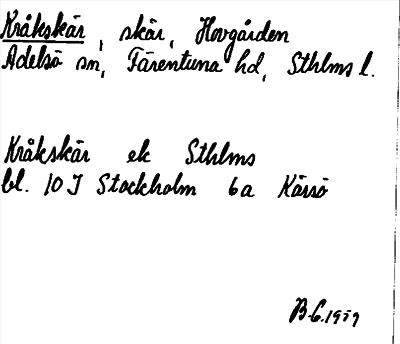 Kråkskär, skär, Hovgården
Adelsö sn, Färentuna hd, Sthlms l.
Kråkskär ek Sthlms
bl. 10 I Stockholm 6a Kärsö
B.G. 1959